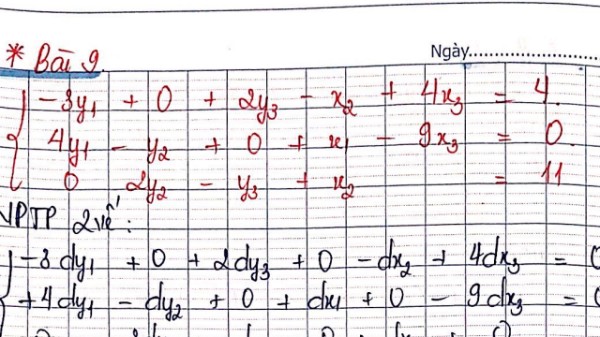 Ngày
* Bài 9
-3y₁ + 0 + 2y₃ - x₂ + 4x₃ = 4.
4y₁ - y₂ + 0 + x₁ - 9x₃ = 0.
0 2y₂ - y₃ + x₂ = 11
VPTP 2 vế:
-3dy₁ + 0 + 2dy₃ + 0 - dx₂ + 4dx₃ = 0
+4dy₁ - dy₂ + 0 + dx₁ + 0 - 9dx₃ = 0